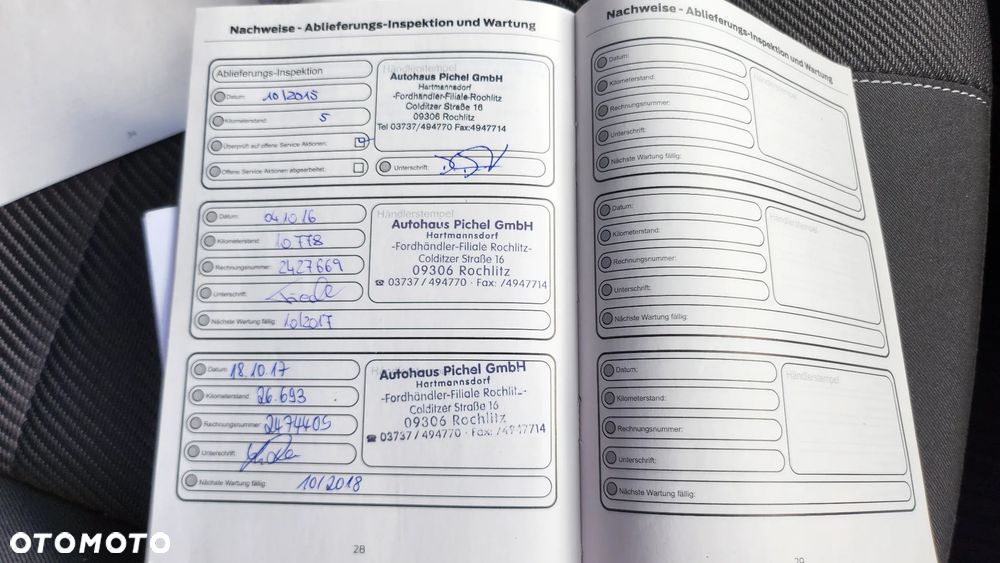 Nachweise - Ablieferungs-Inspektion und Wartung
Ablieferungs-Inspektion
Datum: 10/2015
Kilometerstand: 5
Überprüft auf offene Service Aktionen:
Offene Service Aktionen abgearbeitet:
Händlerstempel
Autohaus Pichel GmbH
Hartmannsdorf
-Fordhändler-Filiale-Rochlitz
Colditzer Straße 16
09306 Rochlitz
Tel 03737/494770 Fax:4947714
Unterschrift:
Datum: 04.10.16
Kilometerstand: 10778
Rechnungsnummer: 2427669
Unterschrift:
Nächste Wartung fällig: 10/2017
Händlerstempel
Autohaus Pichel GmbH
Hartmannsdorf
-Fordhändler-Filiale Rochlitz-
Colditzer Straße 16
09306 Rochlitz
☎ 03737/494770 · Fax: /4947714
Datum: 18.10.17
Kilometerstand: 26.693
Rechnungsnummer: 2474405
Unterschrift:
Nächste Wartung fällig: 10/2018
Autohaus Pichel GmbH
Hartmannsdorf
-Fordhändler-Filiale Rochlitz-
Colditzer Straße 16
09306 Rochlitz
☎ 03737/494770 - Fax: /4947714
28
Nachweise - Ablieferungs-Inspektion und Wartung
Datum:
Kilometerstand:
Rechnungsnummer:
Unterschrift:
Nächste Wartung fällig:
Händlerstempel
Datum:
Kilometerstand:
Rechnungsnummer:
Unterschrift:
Nächste Wartung fällig:
Händlerstempel
Datum:
Kilometerstand:
Rechnungsnummer:
Unterschrift:
Nächste Wartung fällig:
Händlerstempel
29
OTOMOTO